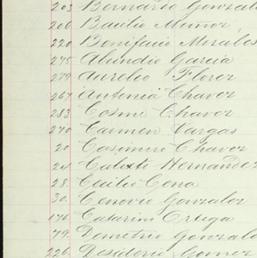 203 Bernardo Gonzale
206 Baulio Muñoz
220 Bonifacio Morales
275 Abundio Garcia
279 Aurelio Florez
267 Antonia Chavez
283 Cosme Chavez
270 Carmen Vargas
20 Casimiro Chavez
24 Calixto Hernandez
28 Cecilio Cena
30 Cenovio Gonzalez
176 Catarino Ortega
79 Demetrio Gonzale
226 Desiderio Gomez